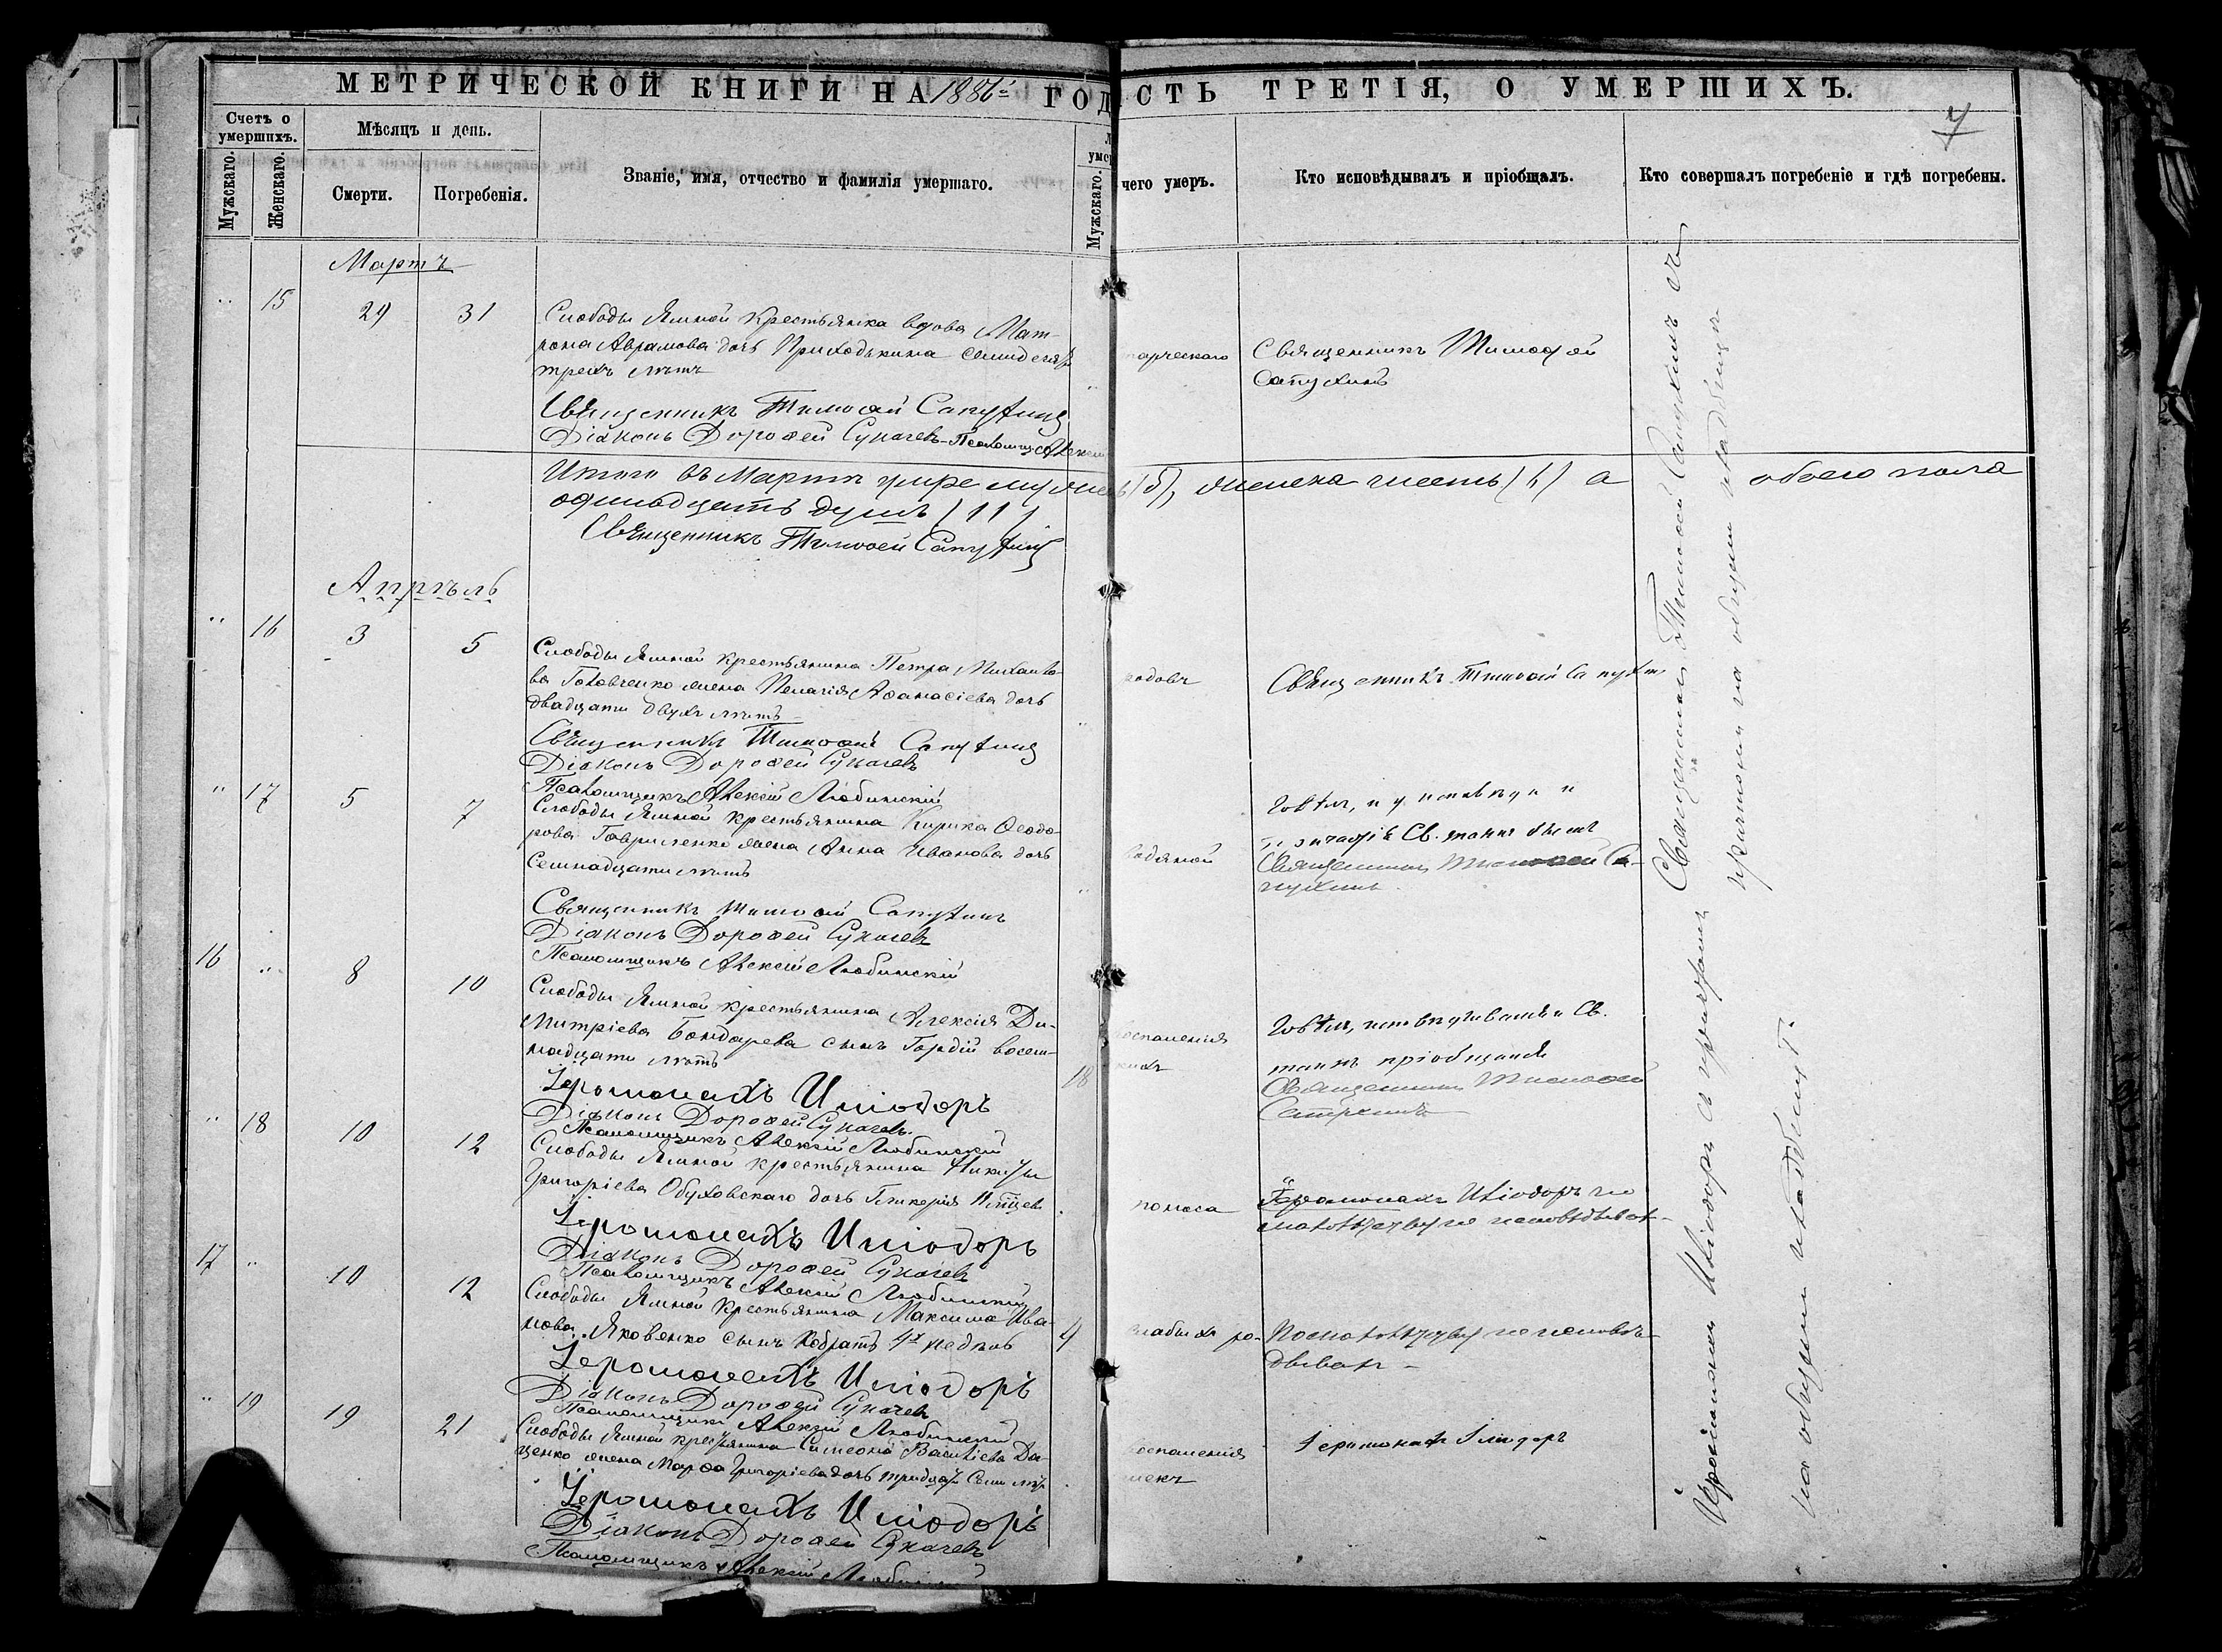 МЕТРИЧЕСКОЙ КНИГИ НА 1886й ГОД
СТЬ ТРЕТІЯ, О УМЕРШИХЪ.
Счетъ о умершихъ.
Мужскаго.
Женскаго.
Мѣсяцъ и день.
Смерти.
Погребенія.
Званіе, имя, отчество и фамилія умершаго.
Мужскаго.
чего умеръ.
Кто исповѣдывалъ и пріобщалъ.
Кто совершалъ погребеніе и гдѣ погребены.
Мартъ
15 29 31
Слободы Ямной крестьянка вдова Мат-
рона Аврамова дочь Приходькина семидесяти
трехъ лѣтъ
Священникъ Тимоѳей Сапухинъ
Діаконъ Дороѳей Сукачевъ Псаломщ. Алексѣй
старческаго
Священникъ Тимоѳей
Сапухинъ
Итого въ Мартѣ умре муж женска шесть (6) а обоего пола
одинадцать душъ (11)
Священникъ Тимоѳей Сапухинъ
Апрѣль
16 3 5
Слободы Ямной крестьянина Петра Михайло-
ва Головченко жена Пелагія Аѳанасіева дочь
двадцати двухъ лѣтъ
Священникъ Тимоѳей Сапухинъ
Діаконъ Дороѳей Сукачевъ
Псаломщикъ Алексѣй Любинскій
родовъ
Священникъ Тимоѳей Сапухинъ
17 5 7
Слободы Ямной крестьянина Кирика Ѳеодо-
рова Гавриленко жена Анна Иванова дочь
семнадцати лѣтъ
Священникъ Тимоѳей Сапухинъ
Діаконъ Дороѳей Сукачевъ
Псаломщикъ Алексѣй Любинскій
водяной
Св. таинъ
Священникъ Тимоѳей Са-
пухинъ
16 8 10
Слободы Ямной крестьянина Алексія Ди-
митріева Бондарева сынъ Гордій восем-
надцати лѣтъ
18
Іеромонахъ Иліодоръ
Діаконъ Дороѳей Сукачевъ
Псаломщикъ Алексѣй Любинскій
оспаленія
Св.
таинъ пріобщался
Священникъ Тимоѳей
Сапухинъ
18 10 12
Слободы Ямной крестьянина Никиты
Григоріева Обуховскаго дочь Гликерія
Іеромонахъ Иліодоръ
Діаконъ Дороѳей Сукачевъ
Псаломщикъ Алексѣй Любинскій
поноса
Іеромонахъ Иліодоръ по
малолѣтству не исповѣдыван
17 10 12
Слободы Ямной крестьянина Максима Ива-
нова Яковенко сынъ Кодратъ 4х недѣль
4
Іеромонахъ Иліодоръ
Діаконъ Дороѳей Сукачевъ
Псаломщикъ Алексѣй Любинскій
слабых ро-
По малолѣтству не исповѣ-
дыван
19 19 21
Слободы Ямной крестьянина Симеона Василіева Да-
ценко жена Марѳа Григоріева дочь тридцати семи лѣтъ
Іеромонахъ Иліодоръ
Діаконъ Дороѳей Сукачевъ
Псаломщикъ Алексѣй Любинскій
оспаленія
Іеромонах Іліодоръ
Священникъ Тимоѳей Сапухинъ съ
причтомъ на общемъ кладбищѣ
Іеромонахъ Иліодоръ съ причтомъ
на общемъ кладбищѣ